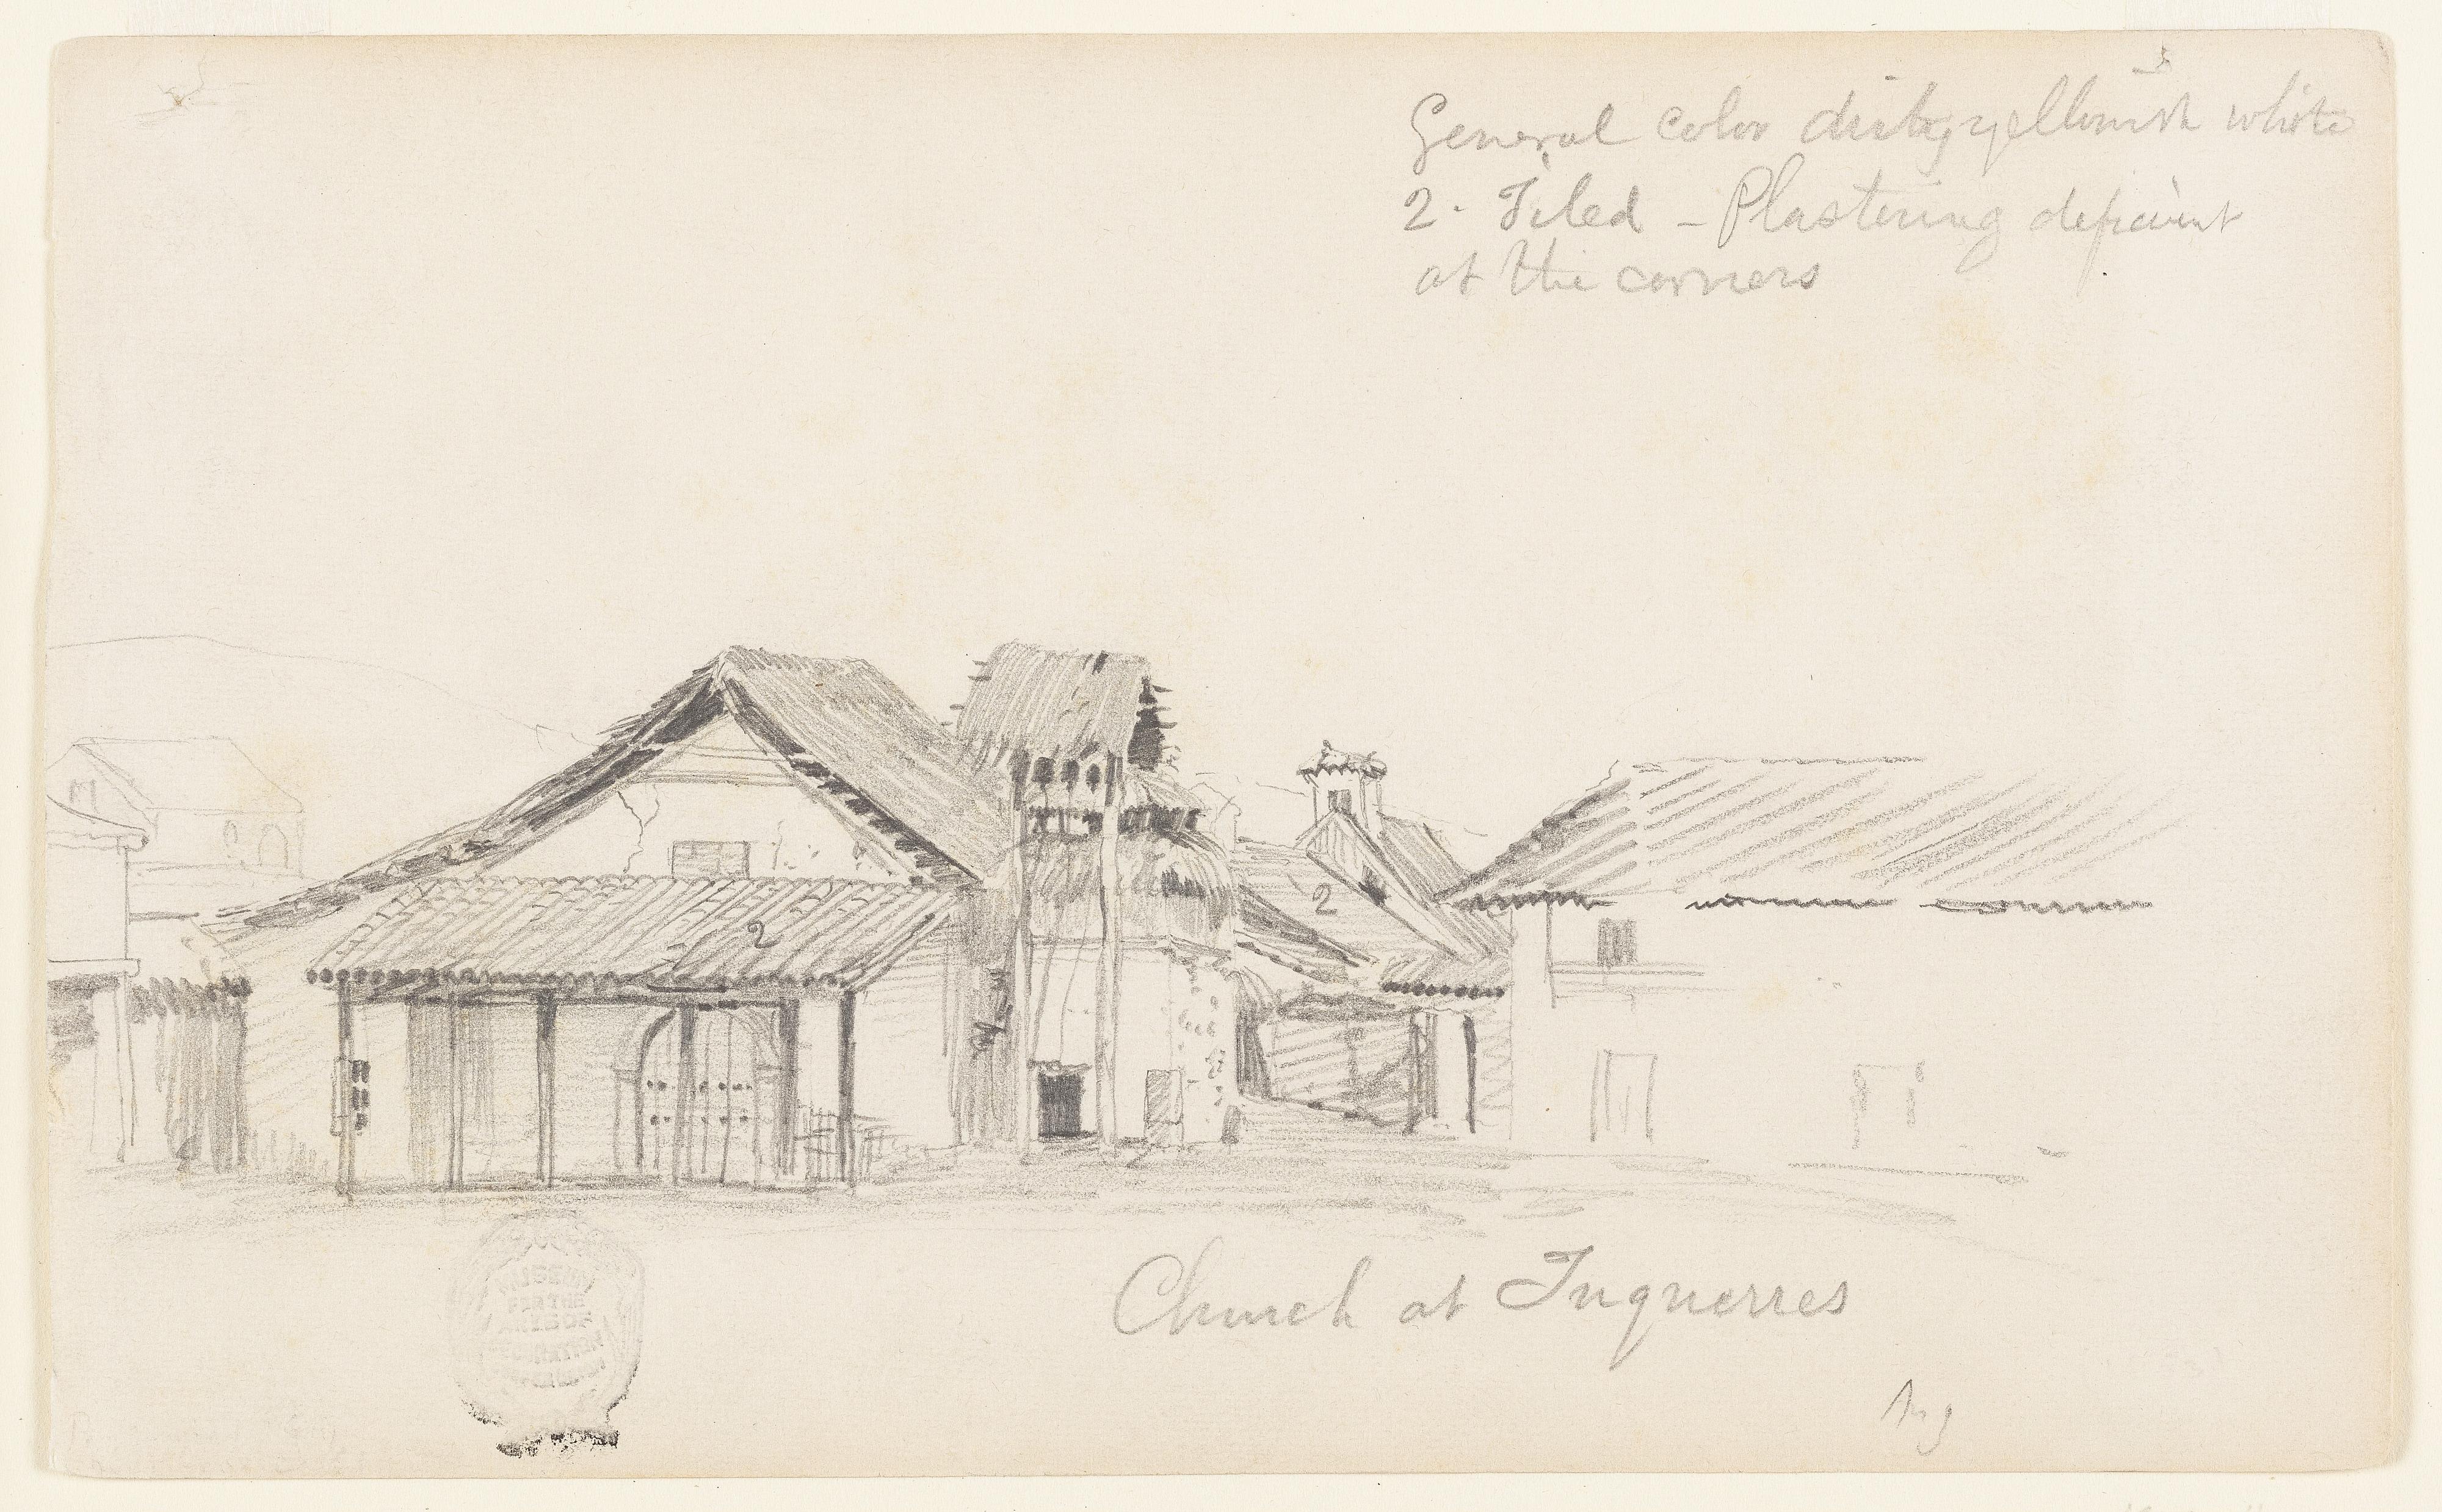 General color dirty yellowish white
2. Tiled - Plastering deficient
at the corners
2
2
Church at Tuquerres
Aug
MUSEUM
FOR THE
ARTS OF
DECORATION